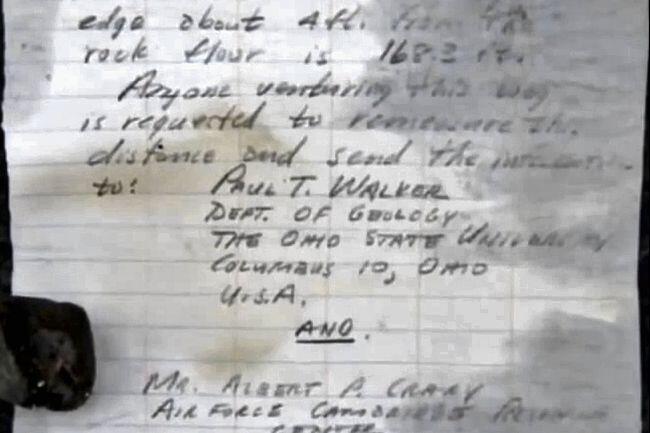 edge about 4 ft. from the
rock floor is 168.3 ft.
Anyone venturing this way
is requested to remeasure this
distance and send the information
to: PAUL T. WALKER
DEPT. OF GEOLOGY
THE OHIO STATE UNIVERSITY
COLUMBUS 10, OHIO
U.S.A.
AND.
MR. ALBERT P. CRARY
AIR FORCE CAMBRIDGE RESEARCH
CENTER